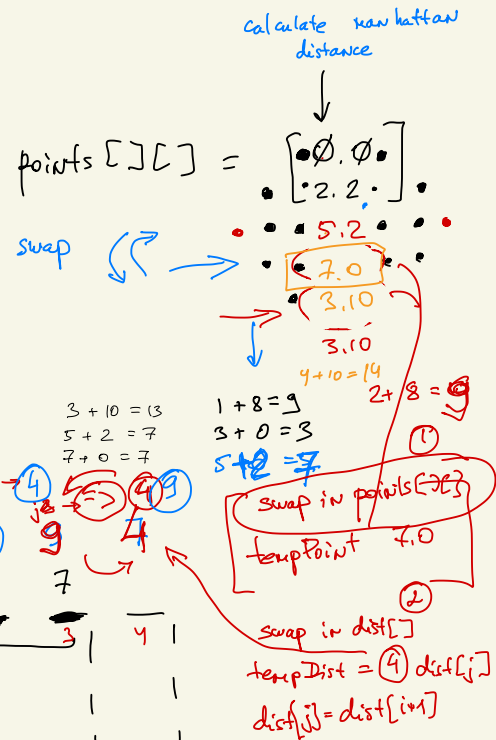 calculate manhattan
distance
points [ ] [ ] =
0.0
2.2
5.2
swap
7.0
3.10
3.10
4+10=14
3 + 10 = 13
5 + 2 = 7
7 + 0 = 7
1 + 8 = 9
3 + 0 = 3
5+2 = 7
2+ 8 =
1
4
=>
4
9
9
4
swap in points[ ][ ]
tempPoint 7.0
7
2
3
4
swap in dist[]
tempDist = 4 dist[j]
dist[j] = dist[i+1]